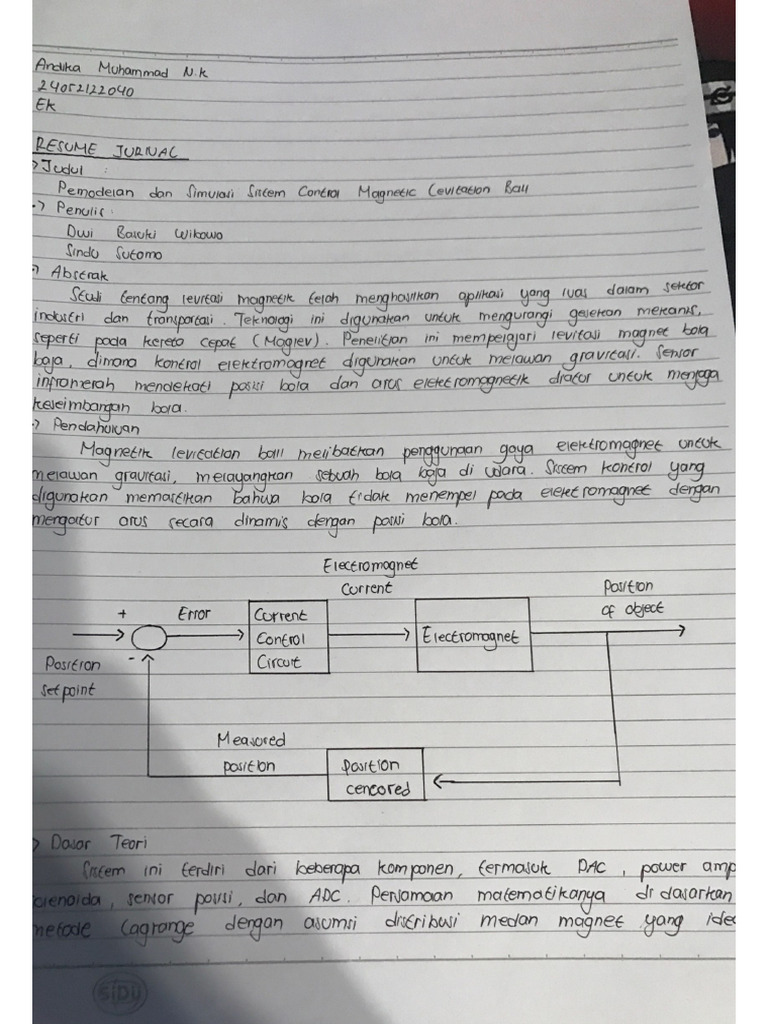 Andika Muhammad N.K
24052122040
EK
RESUME JURNAL
-> Judul :
Pemodelan dan Simulasi Sistem Control Magnetic Levitation Ball
-> Penulis :
Dwi Basuki Wibowo
Sindu Sutomo
-> Abstrak
Studi tentang levitasi magnetik telah menghasilkan aplikasi yang luas dalam sektor
industri dan transportasi. Teknologi ini digunakan untuk mengurangi gesekan mekanis,
seperti pada kereta cepat (Maglev). Penelitian ini mempelajari levitasi magnet bola
baja, dimana kontrol elektromagnet digunakan untuk melawan gravitasi. Sensor
inframerah mendekati posisi bola dan arus elektromagnetik diatur untuk menjaga
keseimbangan bola.
-> Pendahuluan
Magnetik levitation ball melibatkan penggunaan gaya elektromagnet untuk
melawan gravitasi, melayangkan sebuah bola baja di udara. Sistem kontrol yang
digunakan memastikan bahwa bola tidak menempel pada elektromagnet dengan
mengatur arus secara dinamis dengan posisi bola.
Electromagnet
Current
Position
of object
+
Error
Current
Control
Circuit
Electromagnet
-
Position
setpoint
Measured
position
position
cencored
> Dasar Teori
Sistem ini terdiri dari beberapa komponen, termasuk DAC, power amp
olenoida, sensor posisi, dan ADC. Persamaan matematikanya di dasarkan
metode Lagrange dengan asumsi distribusi medan magnet yang idea
SiDU